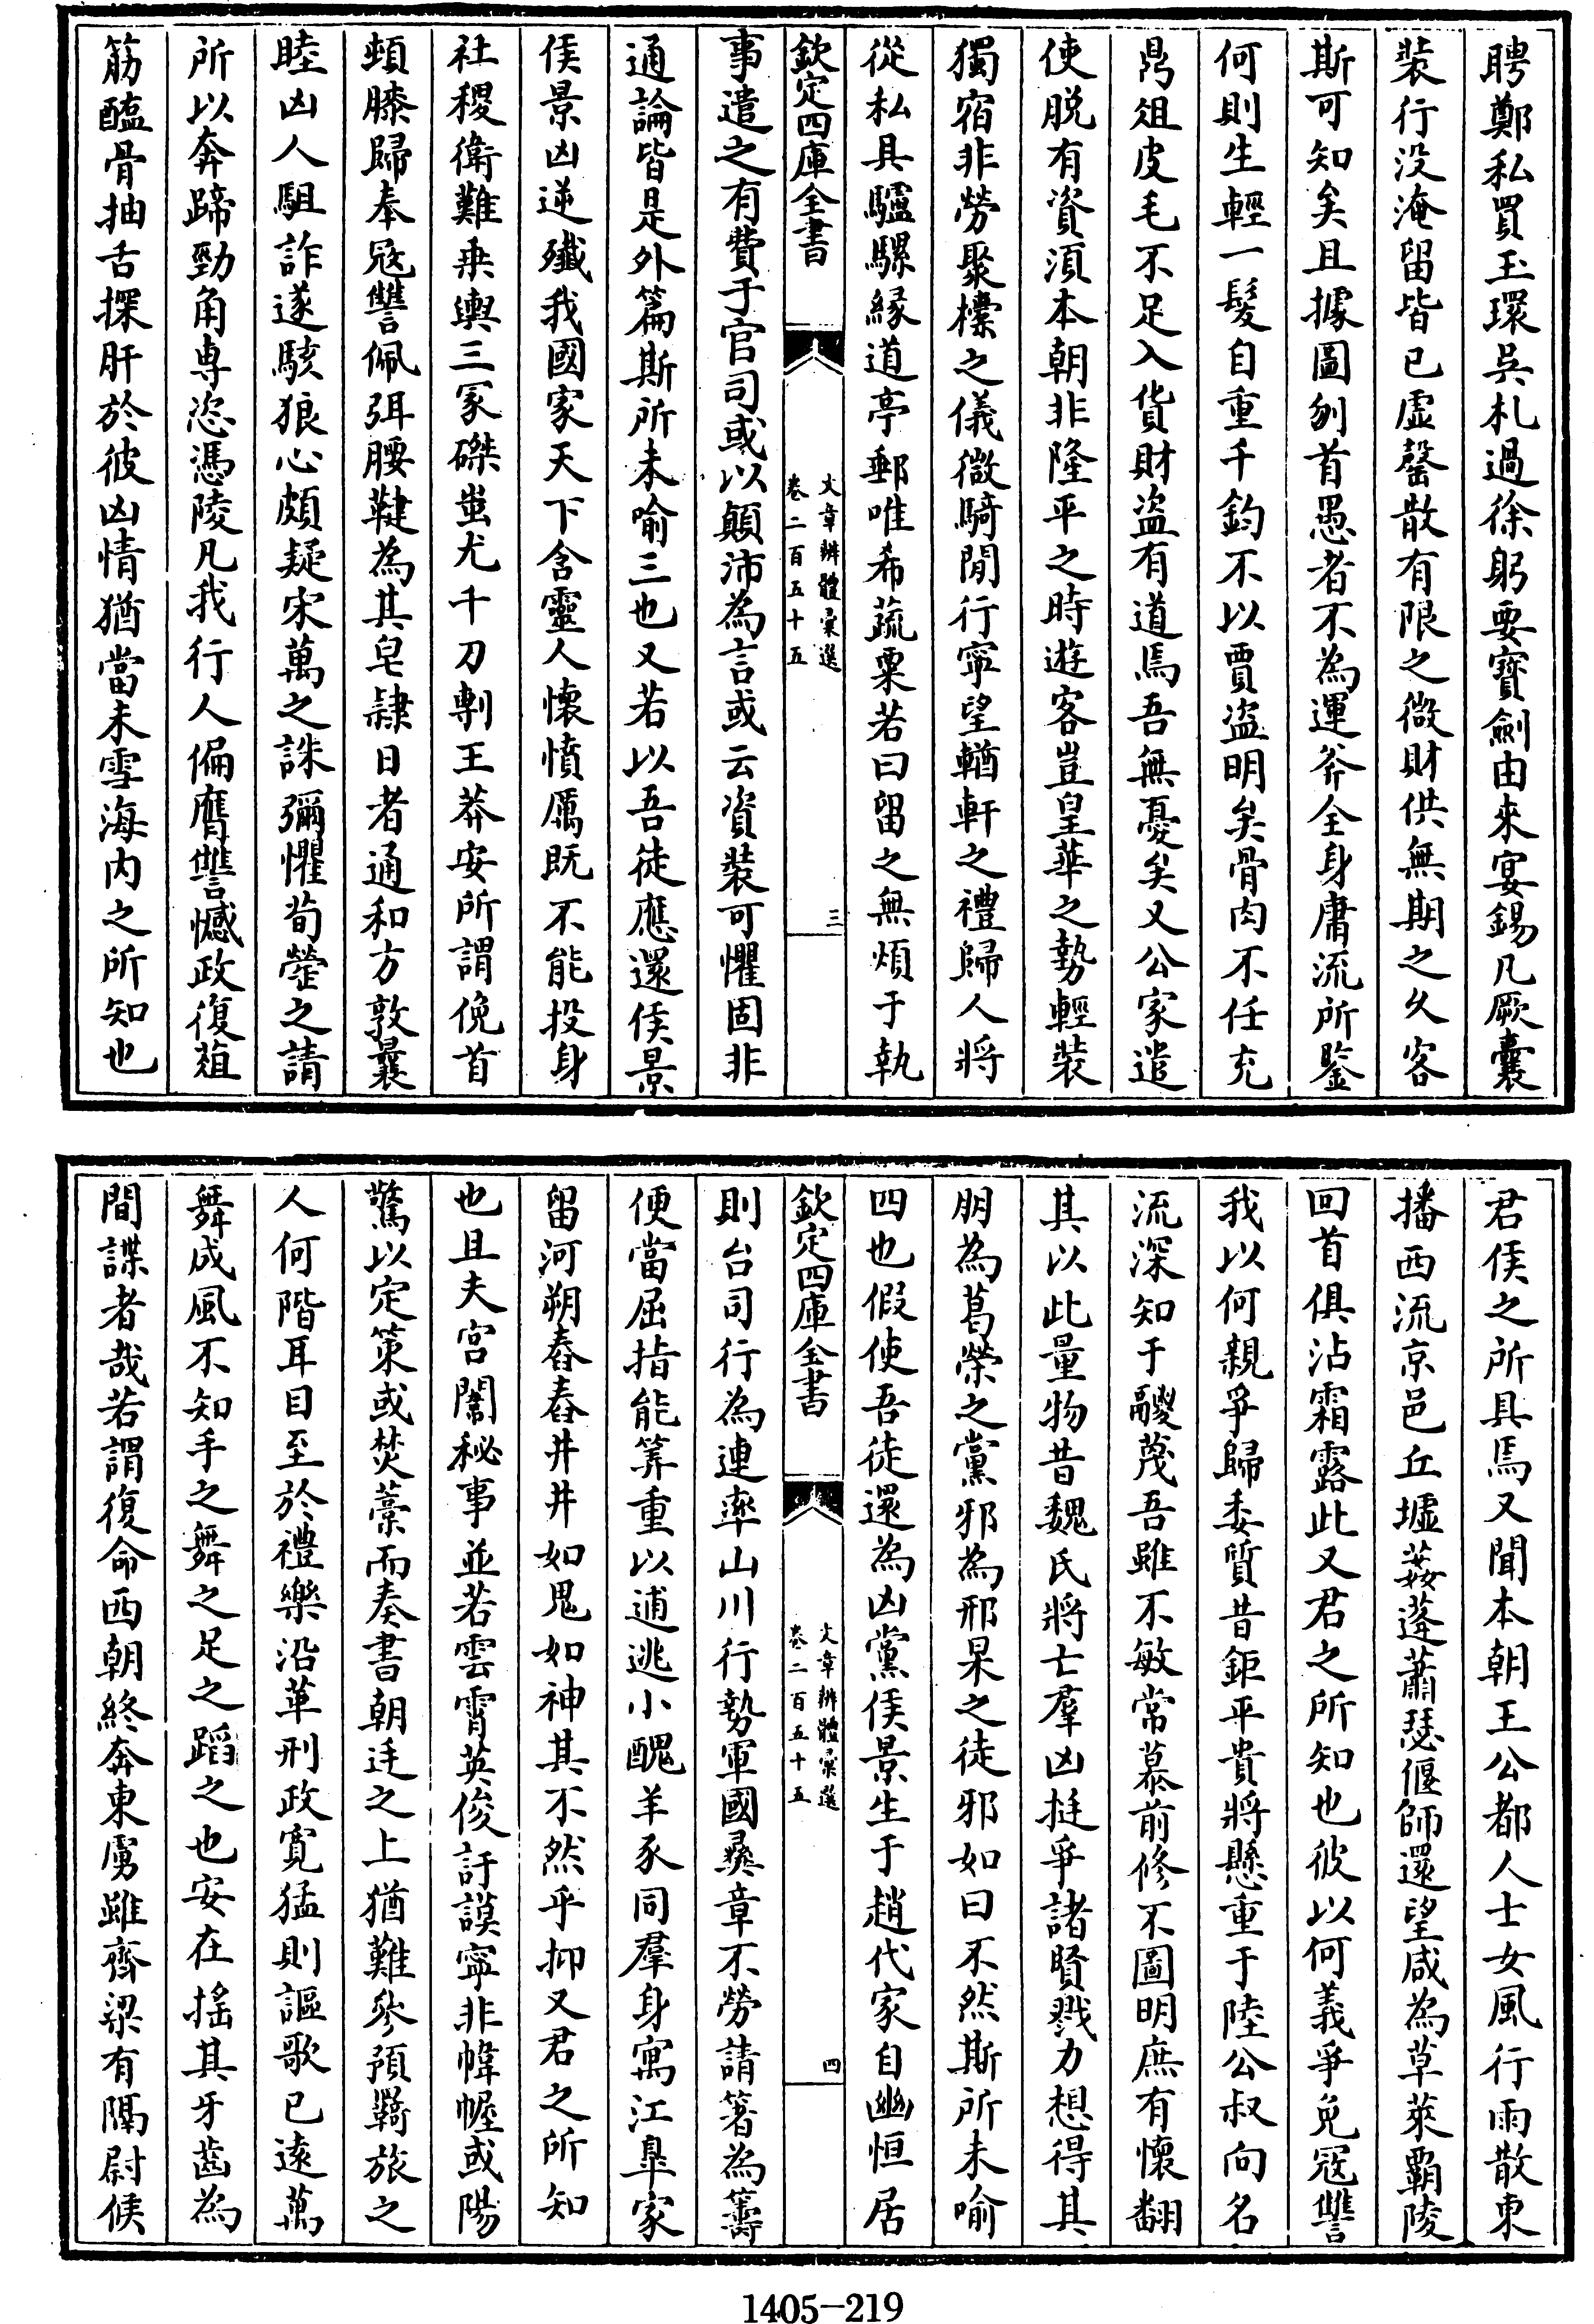 聘鄭私買玉環吳札過徐躬要寶劍由來宴錫凡厥囊
裝行没淹留皆已虛罄散有限之微財供無期之久客
斯可知矣且據圖刎首愚者不為運斧全身庸流所鑒
何則生輕一髪自重千鈞不以賈盜明矣骨肉不任充
鼎俎皮毛不足入貨財盜有道焉吾無憂矣又公家遣
使脱有資湏本朝非隆平之時遊客豈皇華之勢輕裝
獨宿非勞聚檁之儀微騎閒行寧望輶軒之禮歸人將
從私具驢騾縁道亭郵唯希蔬粟若曰留之無煩于執
欽定四庫全書
文章辨體彚選
卷二百五十五
三
事遣之有費于官司或以顛沛為言或云資裝可懼固非
通論皆是外篇斯所未喻三也又若以吾徒應還侯景
侯景凶逆殲我國家天下含靈人懷憤厲既不能投身
社稷衛難乗輿三冢磔蚩尤千刀剸王莽安所謂俛首
頓膝歸奉冦讐佩弭腰鞬為其皂隸日者通和方敦曩
睦凶人駔詐遂駭狼心頗疑宋萬之誅彌懼荀罃之請
所以奔蹄勁角専恣憑陵凡我行人偏膺讐憾政復葅
筋醢骨抽舌探肝於彼凶情猶當未雪海内之所知也
君侯之所具焉又聞本朝王公都人士女風行雨散東
播西流京邑丘墟姦蓬蕭瑟偃師還望咸為草萊覇陵
回首俱沾霜露此又君之所知也彼以何義爭免冦讐
我以何親爭歸委質昔鉅平貴將懸重于陸公叔向名
流深知于鬷蔑吾雖不敏常慕前修不圖明庶有懷翻
其以此量物昔魏氏將亡羣凶挺爭諸賢戮力想得其
朋為葛榮之黨邪為邢杲之徒邪如曰不然斯所未喻
四也假使吾徒還為凶黨侯景生于趙代家自幽恒居
欽定四庫全書
文章辨體彚選
卷二百五十五
四
則台司行為連率山川行勢軍國彞章不勞請箸為籌
便當屈指能筭重以逋逃小醜羊豕同羣身寓江臯家
留河朔舂舂井井如鬼如神其不然乎抑又君之所知
也且夫宫闈秘事並若雲霄英俊訏謨寧非幃幄或陽
驚以定策或焚藁而奏書朝廷之上猶難參預羇旅之
人何階耳目至於禮樂沿革刑政寛猛則謳歌已遠萬
舞成風不知手之舞之足之蹈之也安在搖其牙齒為
間諜者哉若謂復命西朝終奔東虜雖齊梁有隔尉候
1405-219